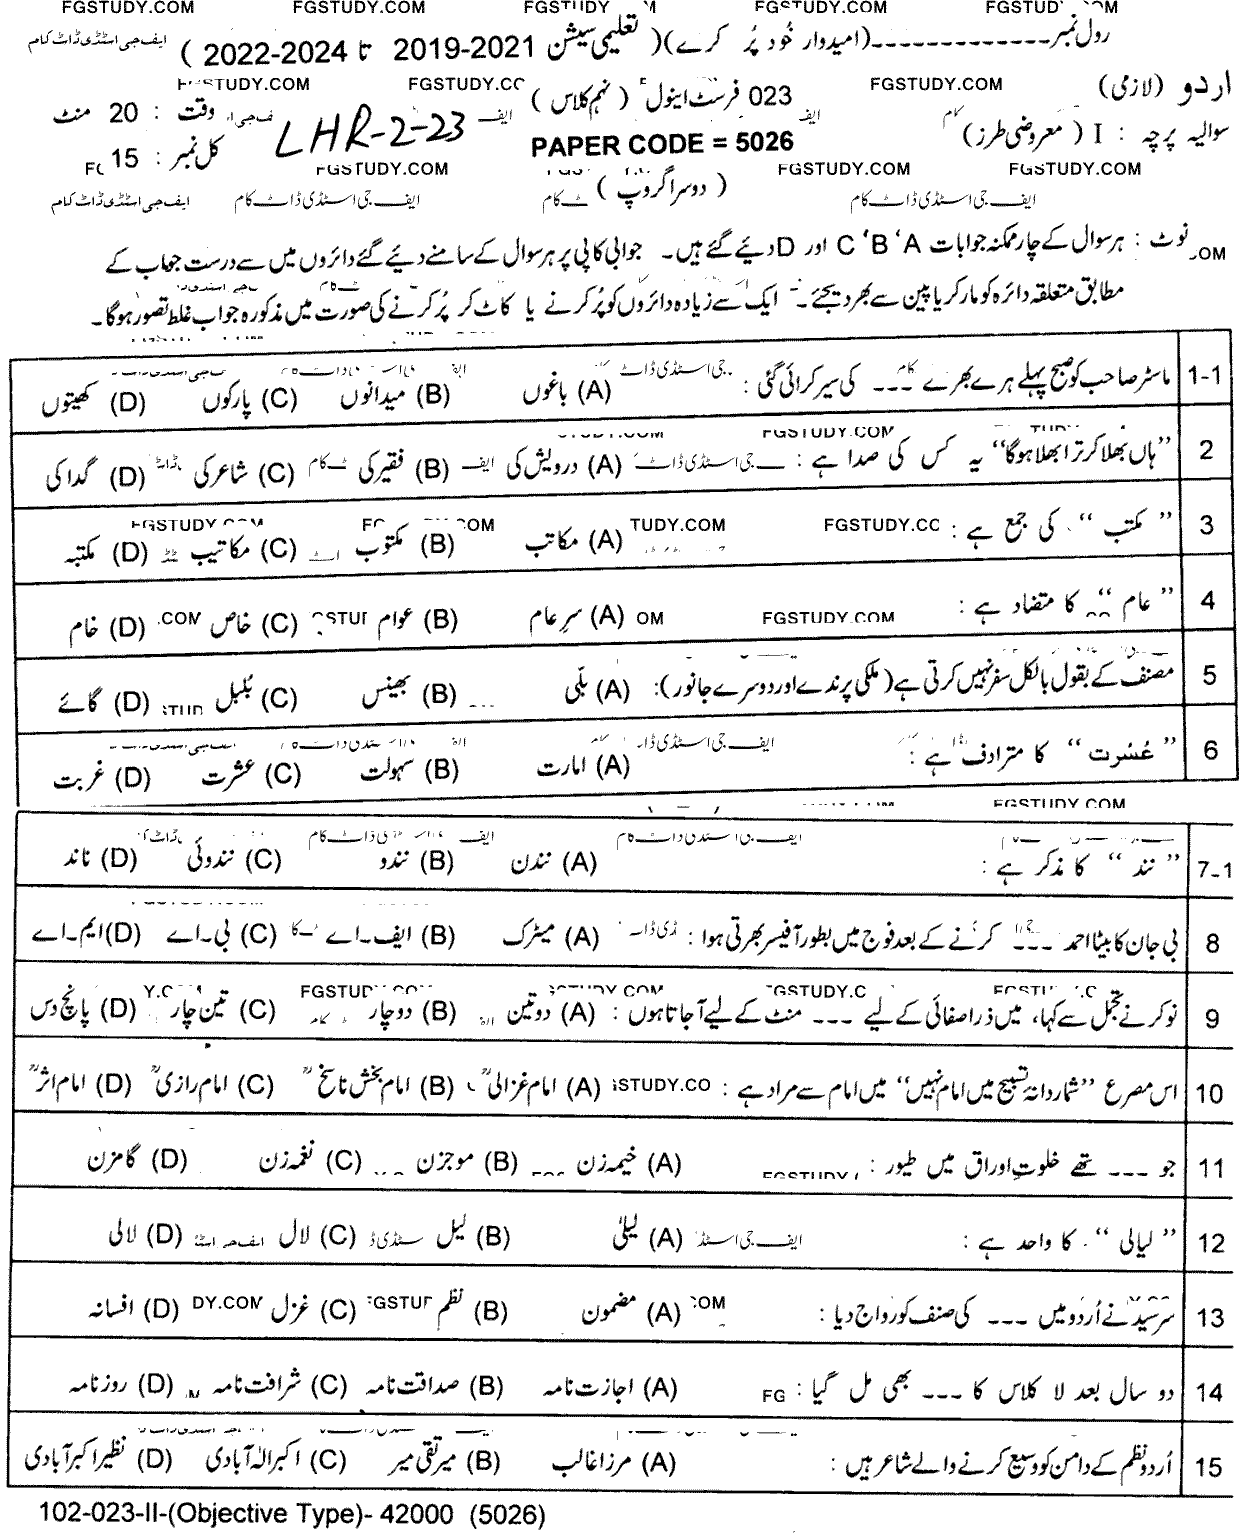 FGSTUDY.COM FGSTUDY.COM FGSTUDY.COM FGSTUDY.COM
رول نمبر ـــــــــــــــ (امیدوار خود پُر کرے) ( تعلیمی سیشن 2021-2019 تا 2024-2022 ) ایف جی اسٹڈی ڈاٹ کام
اردو (لازمی) FGSTUDY.COM 023 فرسٹ اینول ( نہم کلاس ) FGSTUDY.COM
سوالیہ پرچہ : I ( معروضی طرز ) PAPER CODE = 5026 LHR-2-23 وقت : 20 منٹ
FGSTUDY.COM FGSTUDY.COM FGSTUDY.COM کل نمبر : 15
( دوسرا گروپ )
ایف جی اسٹڈی ڈاٹ کام ایف جی اسٹڈی ڈاٹ کام ایف جی اسٹڈی ڈاٹ کام
نوٹ : ہر سوال کے چار ممکنہ جوابات A ' B ' C اور D دیئے گئے ہیں۔ جوابی کاپی پر ہر سوال کے سامنے دیئے گئے دائروں میں سے درست جواب کے
مطابق متعلقہ دائرہ کو مارکر یا پین سے بھر دیجئے۔ ایک سے زیادہ دائروں کو پُر کرنے یا کاٹ کر پُر کرنے کی صورت میں مذکورہ جواب غلط تصور ہوگا۔
1-1 ماسٹر صاحب کو صبح پہلے ہرے بھرے --- کی سیر کرائی گئی : (A) باغوں (B) میدانوں (C) پارکوں (D) کھیتوں
2 "ہاں بھلا کر ترا بھلا ہوگا" یہ کس کی صدا ہے : (A) درویش کی (B) فقیر کی (C) شاعر کی (D) گدا کی
3 " مکتب " کی جمع ہے : (A) مکاتب (B) مکتوب (C) مکاتیب (D) مکتبہ
4 " عام " کا متضاد ہے : (A) سرِعام (B) عوام (C) خاص (D) خام
5 مصنف کے بقول بالکل سفر نہیں کرتی ہے (ملکی پرندے اور دوسرے جانور): (A) بلّی (B) بھینس (C) بُلبل (D) گائے
6 " عُسْرت " کا مترادف ہے : (A) امارت (B) سہولت (C) عشرت (D) غربت
7-1 " نند " کا مذکر ہے : (A) نندن (B) نندو (C) نندوئی (D) ناند
8 بی جان کا بیٹا احمد --- کرنے کے بعد فوج میں بطور آفیسر بھرتی ہوا : (A) میٹرک (B) ایف۔اے (C) بی۔اے (D) ایم۔اے
9 نوکر نے تجمل سے کہا، میں ذرا صفائی کے لیے --- منٹ کے لیے آ جاتا ہوں : (A) دو تین (B) دو چار (C) تین چار (D) پانچ دس
10 اس مصرع "شمار دانۂ تسبیح میں امام نہیں" میں امام سے مراد ہے : (A) امام غزالیؒ (B) امام بخش ناسخؒ (C) امام رازیؒ (D) امام اثرؒ
11 جو --- تھے خلوتِ اوراق میں طیور : (A) خیمہ زن (B) موجزن (C) نغمہ زن (D) گامزن
12 " لیالی " کا واحد ہے : (A) لیلیٰ (B) لیل (C) لال (D) لالی
13 سرسید نے اُردو میں --- کی صنف کو رواج دیا : (A) مضمون (B) نظم (C) غزل (D) افسانہ
14 دو سال بعد لا کلاس کا --- بھی مل گیا : (A) اجازت نامہ (B) صداقت نامہ (C) شرافت نامہ (D) روزنامہ
15 اُردو نظم کے دامن کو وسیع کرنے والے شاعر ہیں : (A) مرزا غالب (B) میر تقی میر (C) اکبر الٰہ آبادی (D) نظیر اکبر آبادی
102-023-II-(Objective Type)- 42000 (5026)